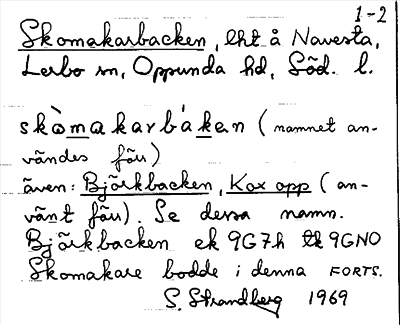 1-2
Skomakarbacken, lht å Navesta,
Lerbo sn, Oppunda hd, Söd. l.
skòmakarbáken (namnet an-
vändes förr)
även: Björkbacken, Kax opp (an-
vänt förr). Se dessa namn.
Björkbacken ek 9G7h tk 9GNO
Skomakare bodde i denna FORTS.
S. Strandberg 1969